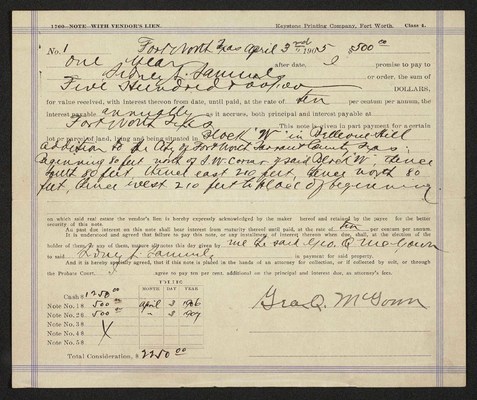 1760—NOTE WITH VENDOR'S LIEN. Keystone Printing Company, Fort Worth. Class 4.
No. 1 Fort Worth Texas April 3rd 1905 $500.00
One Year after date, I promise to pay to
Sidney L. Samuels or order, the sum of
Five Hundred & 00/100 DOLLARS,
for value received, with interest thereon from date, until paid, at the rate of ten per centum per annum, the
interest payable annually as it accrues, both principal and interest payable at
Fort Worth Texas This note is given in part payment for a certain
lot or parcel of land, lying and being situated in Block "W" in Bellevue Hill
addition to the City of Fort Worth Tarrant County Texas:
Beginning 80 feet north of S.W. corner of said Block "W", thence
south 80 feet, thence east 210 feet, thence north 80
feet, thence west 210 feet to place of beginning
on which said real estate the vendor's lien is hereby expressly acknowledged by the maker hereof and retained by the payee for the better
security of this note.
All past due interest on this note shall bear interest from maturity thereof until paid, at the rate of ten per centum per annum.
It is understood and agreed that failure to pay this note, or any installment of interest thereon when due, shall, at the election of the
holder of them, or any of them, mature all notes this day given by me the said Geo. Q. McGown
to said Sidney L. Samuels in payment for said property.
And it is hereby specially agreed, that if this note is placed in the hands of an attorney for collection, or if collected by suit, or through
the Probate Court, I agree to pay ten per cent. additional on the principal and interest due, as attorney's fees.
MONTH DAY YEAR
Cash $ 1250 00
Note No. 1 $ 500 00 April 3 1906
Note No. 2 $ 500 00 " 3 1907
Note No. 3 $
Note No. 4 $
Note No. 5 $
Total Consideration, $ 2250 00
Geo. Q. McGown